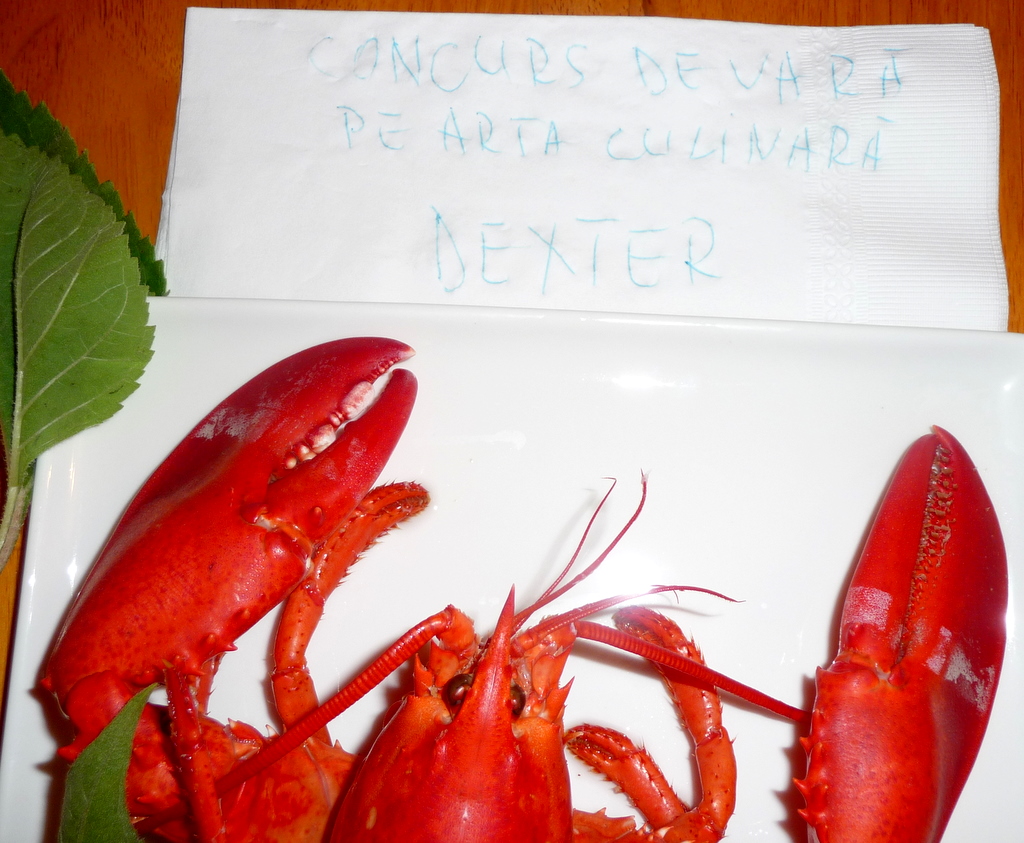 CONCURS DE VARĂ
PE ARTA CULINARĂ
DEXTER